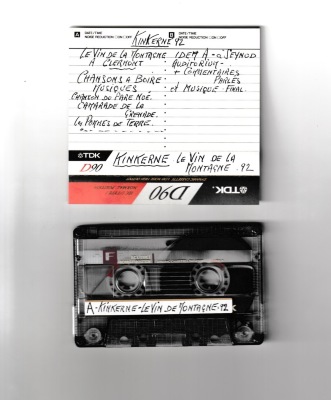 A DATE/TIME
NOISE REDUCTION ☐ON ☐OFF
B DATE/TIME
NOISE REDUCTION ☐ON ☐OFF
KINKERNE 92
LE VIN DE LA MONTAGNE
A CLERMONT
CHANSONS A BOIRE
MUSIQUES
CHANSON DU PARE NOÉ.
CAMARADE DE LA
GRENADE.
LES POMMES DE TERRE.
IDEM A - A SEYNOD
AUDITORIUM -
+ COMMENTAIRES
PARLÉS
ET MUSIQUE FINAL.
TDK
D90
KINKERNE LE VIN DE LA
MONTAGNE - 92
D90
TDK.
F
A-KINKERNE-LE VIN DE MONTAGNE-92